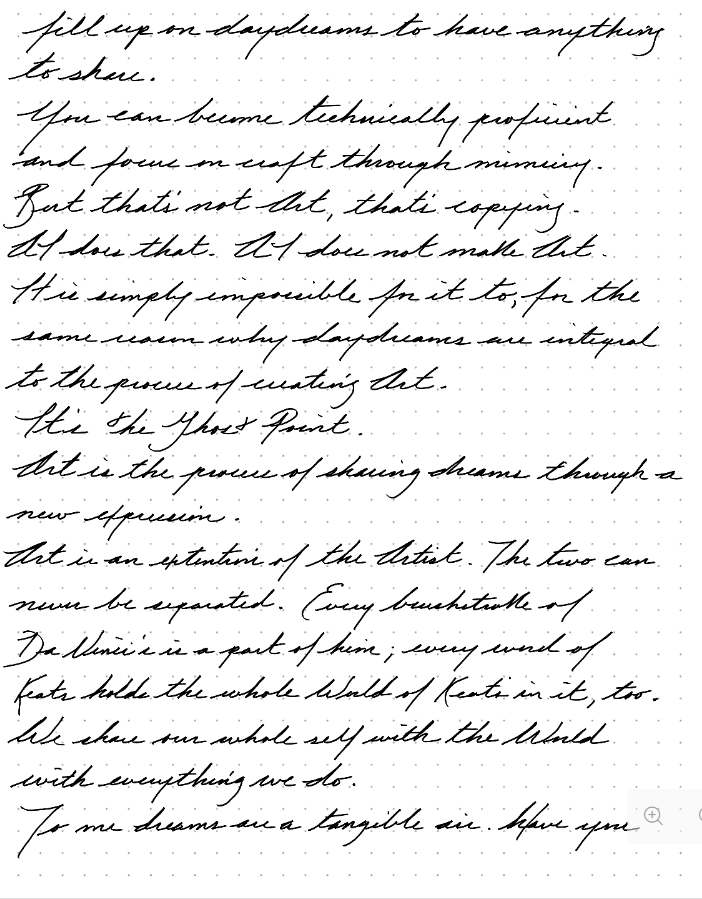 fill up on daydreams to have anything
to share.
You can become technically proficient
and focus on craft through mimicry.
But that's not Art, that's copying.
AI does that. AI does not make Art.
It is simply impossible for it to, for the
same reason why daydreams are integral
to the process of creating Art.
It's the Ghost Point.
Art is the process of sharing dreams through a
new expression.
Art is an extention of the Artist. The two can
never be separated. Every brushstroke of
Da Vinci's is a part of him; every word of
Keats holds the whole World of Keats in it, too.
We share our whole self with the World
with everything we do.
To me dreams are a tangible air. Have you